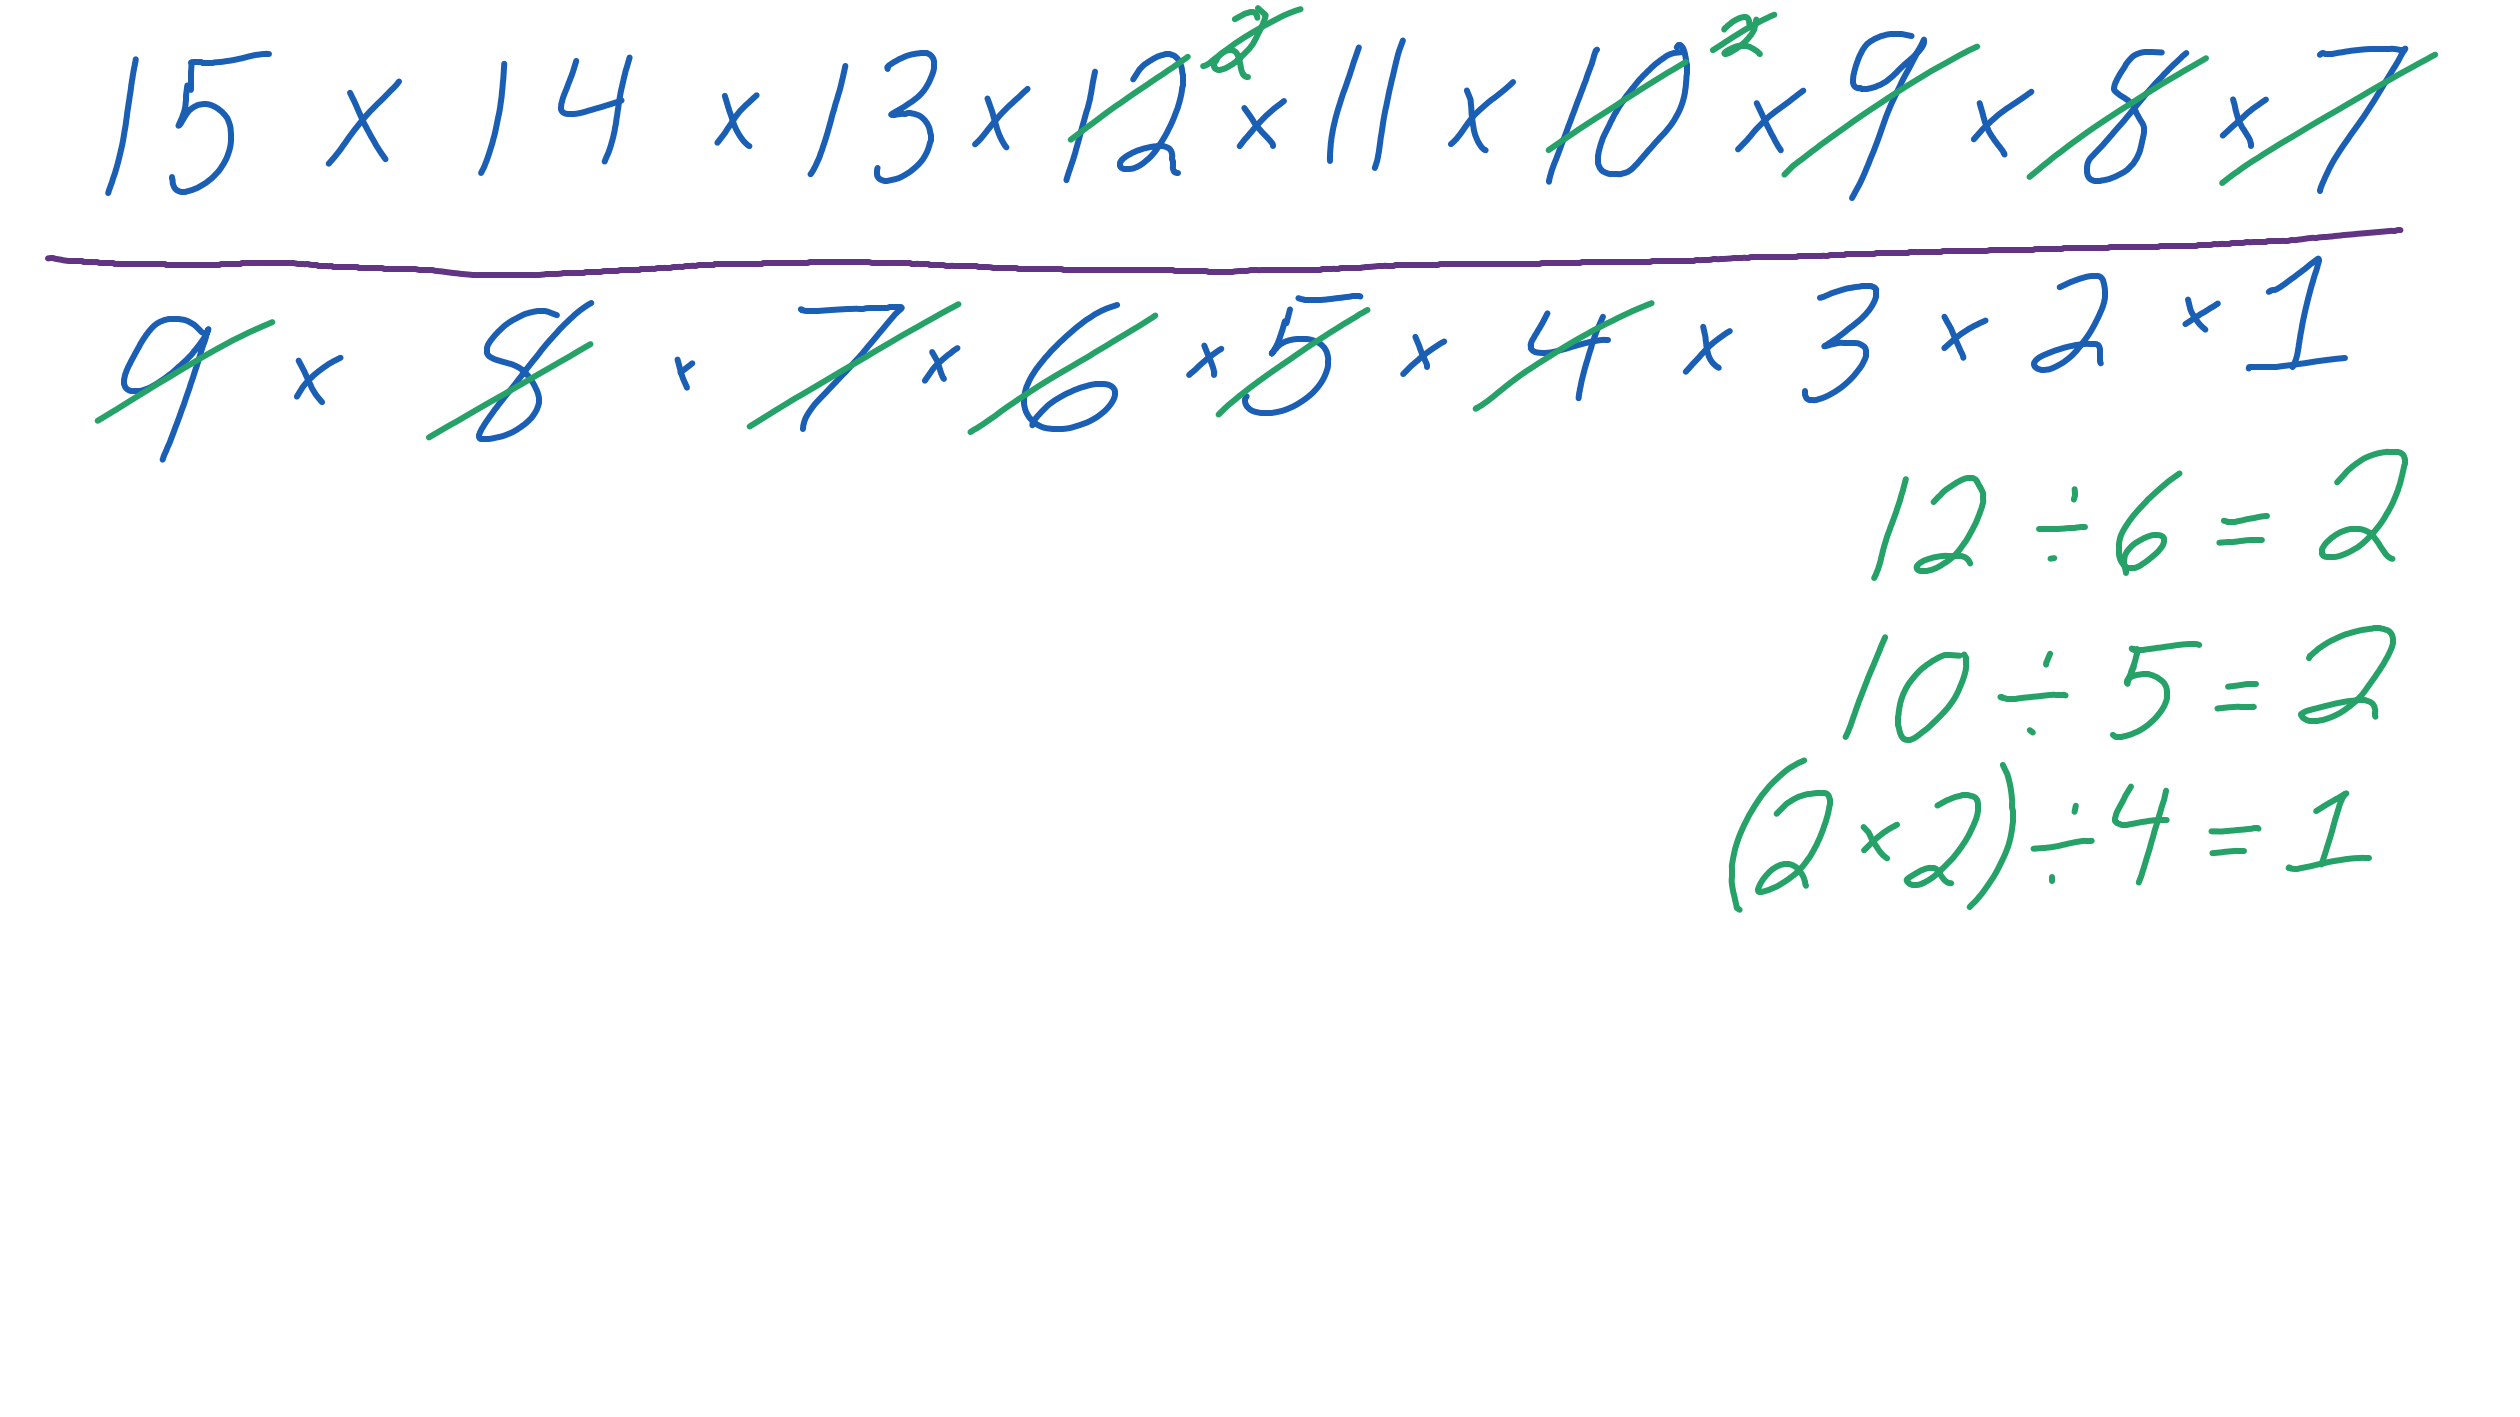 2 2
15 × 14 × 13 × 12 × 11 × 10 × 9 × 8 × 7
9 × 8 × 7 × 6 × 5 × 4 × 3 × 2 × 1
12 ÷ 6 = 2
10 ÷ 5 = 2
(2 × 2) ÷ 4 = 1